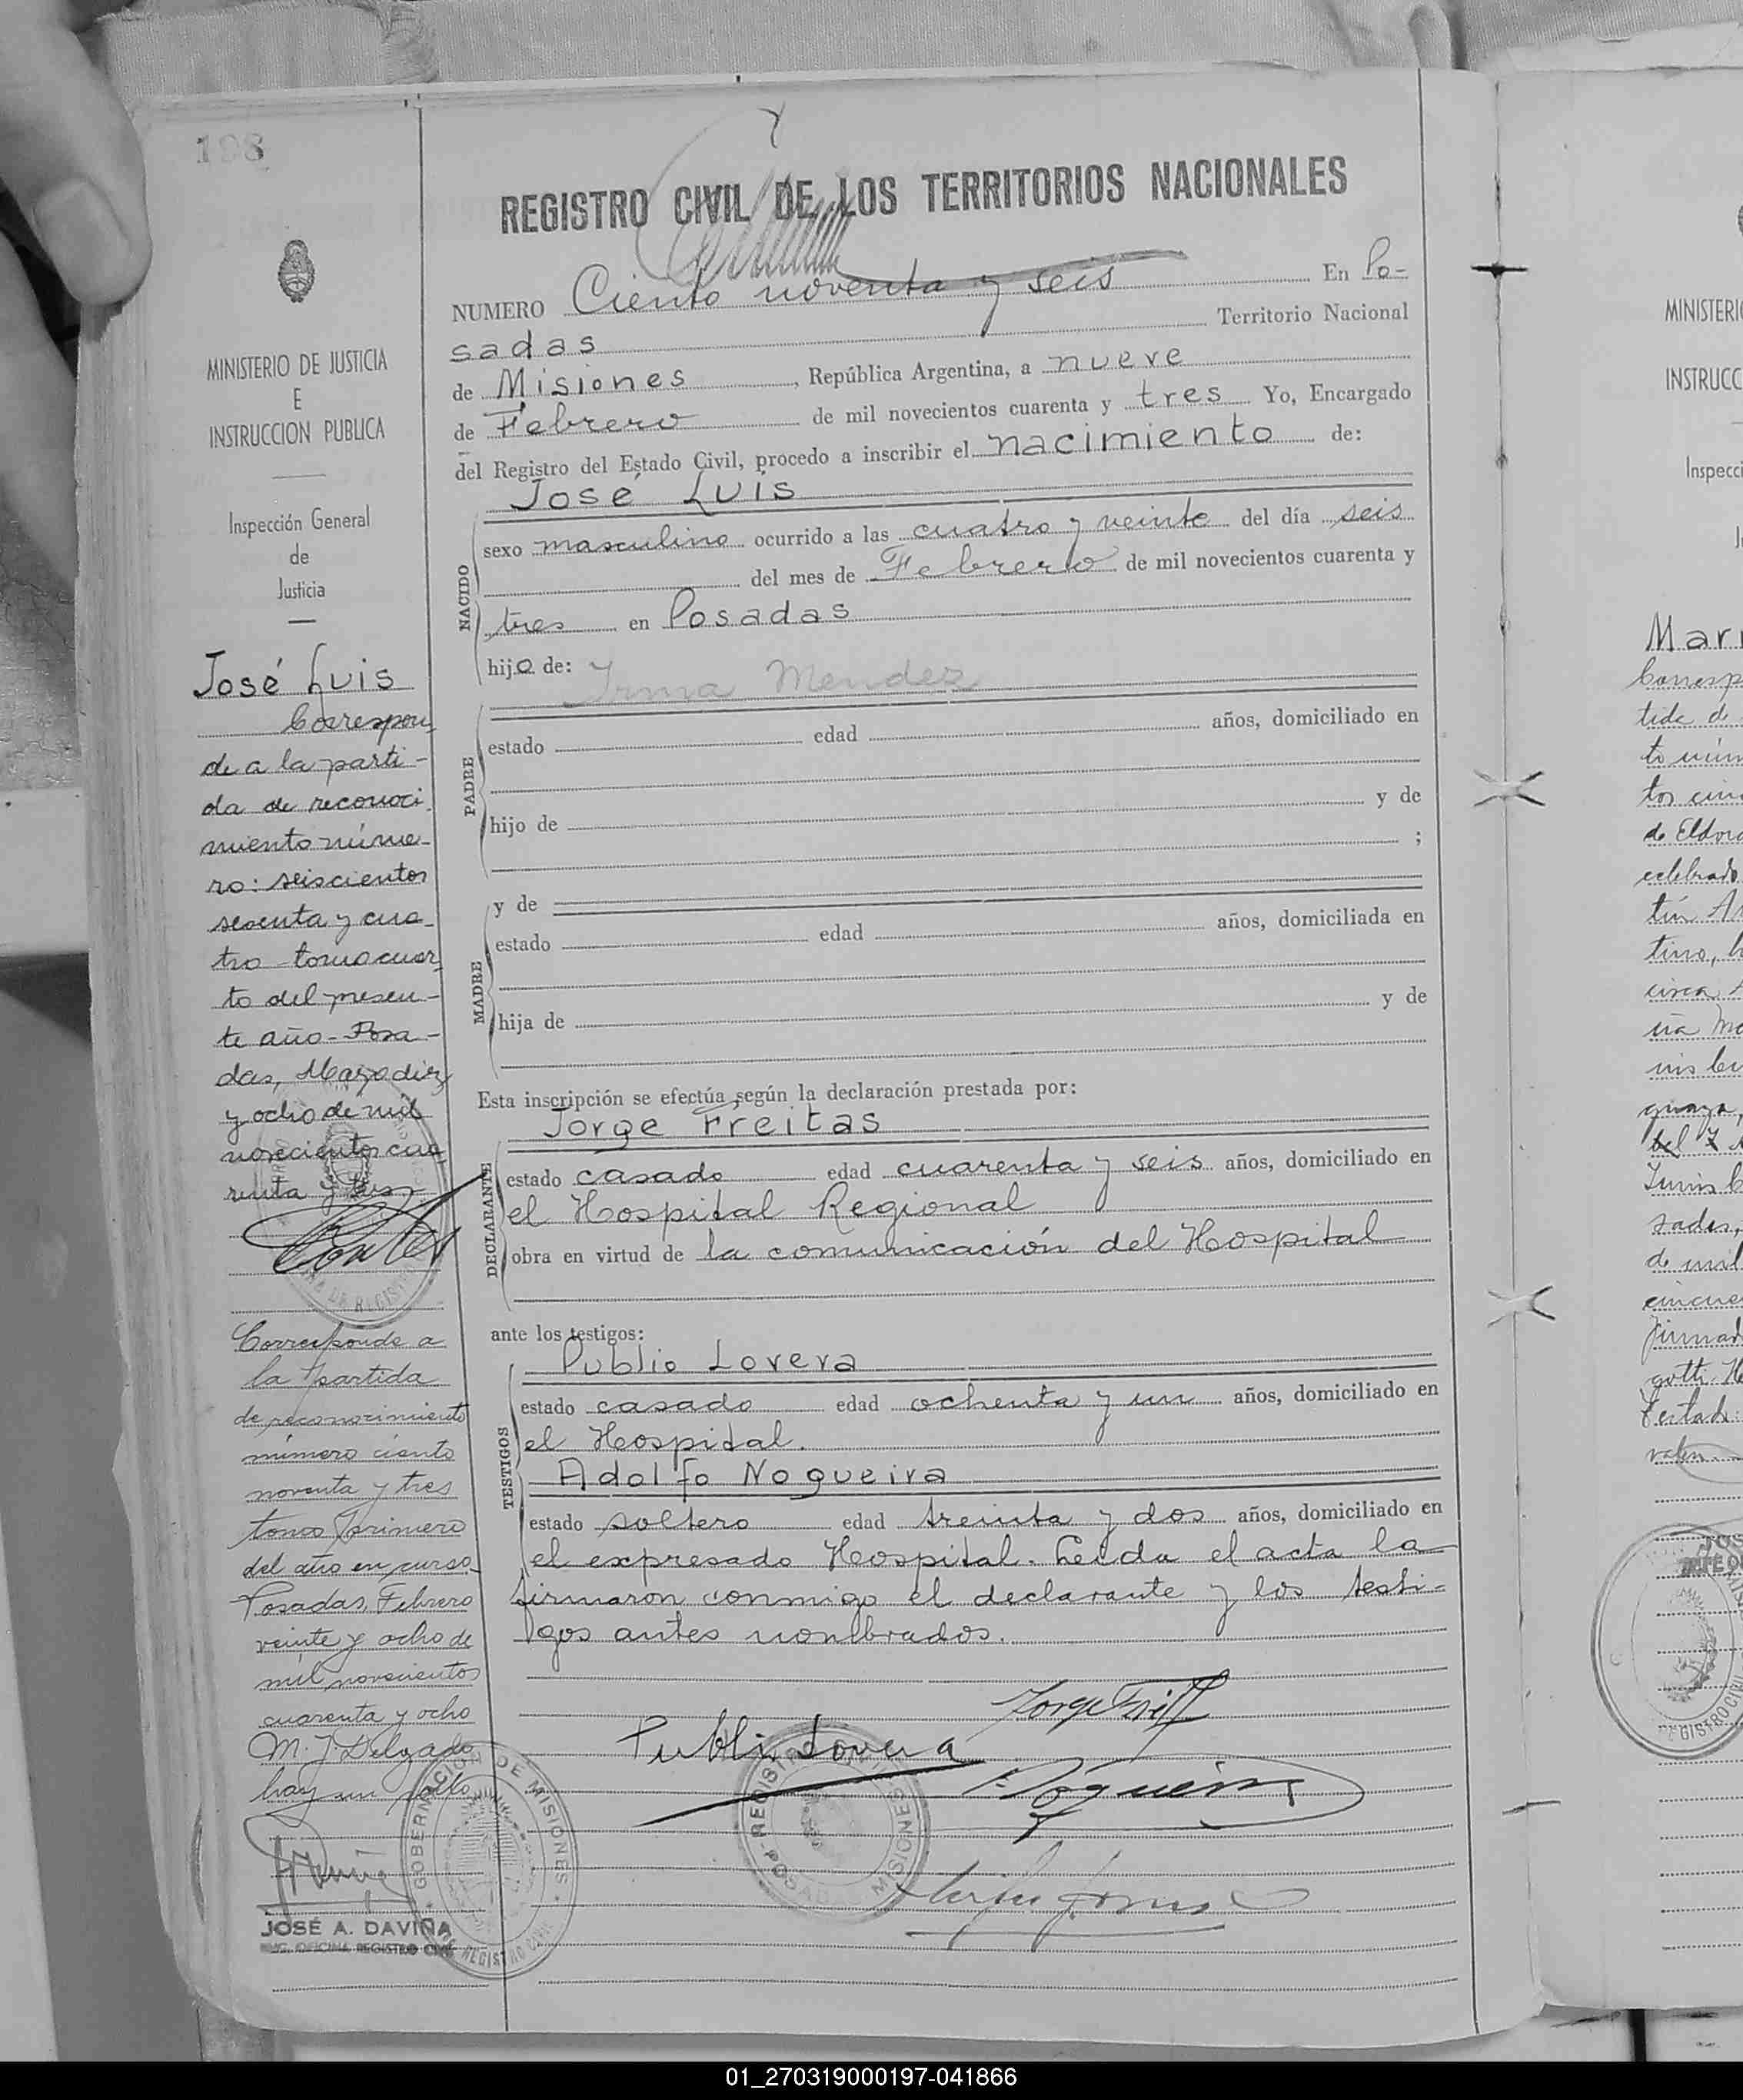 198
REGISTRO CIVIL DE LOS TERRITORIOS NACIONALES
NUMERO Ciento noventa y seis En Po-
sadas Territorio Nacional
de Misiones, República Argentina, a nueve
de Febrero de mil novecientos cuarenta y tres Yo, Encargado
del Registro del Estado Civil, procedo a inscribir el nacimiento de:
José Luis
NACIDO
sexo masculino ocurrido a las cuatro y veinte del día seis
del mes de Febrero de mil novecientos cuarenta y
tres en Posadas
hijo de: Irma Mendez
PADRE
estado edad años, domiciliado en
hijo de y de
;
y de
MADRE
estado edad años, domiciliada en
hija de y de
Esta inscripción se efectúa según la declaración prestada por:
Jorge Freitas
DECLARANTE
estado casado edad cuarenta y seis años, domiciliado en
el Hospital Regional
obra en virtud de la comunicación del Hospital
ante los testigos:
Publio Lovera
TESTIGOS
estado casado edad ochenta y un años, domiciliado en
el Hospital.
Adolfo Nogueira
estado soltero edad treinta y dos años, domiciliado en
el expresado Hospital. Leida el acta la
firmaron conmigo el declarante y los testi-
gos antes nombrados.
Publio Lovera
MINISTERIO DE JUSTICIA
E
INSTRUCCION PUBLICA
Inspección General
de
Justicia
José Luis
Correspon
de a la parti-
da de reconoci
miento núme-
ro: seiscientos
sesenta y cua-
tro tomo cuar
to del presen-
te año - Posa-
das, Mayo diez
y ocho de mil
novecientos cua
renta y tres
Corresponde a
la partida
de reconocimiento
número ciento
noventa y tres
tomo primero
del año en curso.
Posadas, Febrero
veinte y ocho de
mil novecientos
cuarenta y ocho
M. J. Delgado
hay un sello
JOSÉ A. DAVIÑA
ENC. OFICINA REGISTRO CIVIL
GOBERNACION DE MISIONES
REGISTRO CIVIL
REGISTRO
MISIONES
POSADAS
MINISTERI
INSTRUCC
Inspecci
Mari
tida de
de Eldora
celebrado
01_270319000197-041866